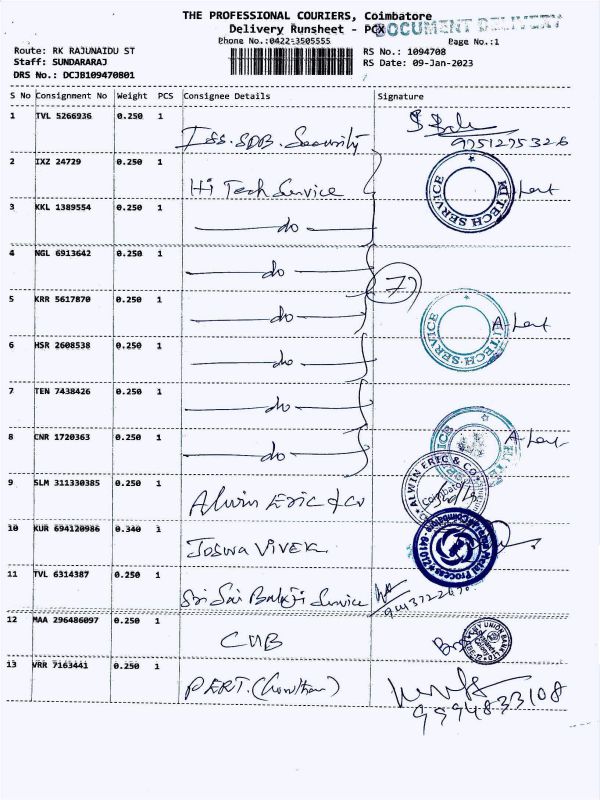 THE PROFESSIONAL COURIERS, Coimbatore
Delivery Runsheet - PCX
DOCUMENT DELIVERY
Phone No.:0422-3505555
Page No.:1
Route: RK RAJUNAIDU ST
RS No.: 1094708
Staff: SUNDARARAJ
RS Date: 09-Jan-2023
DRS No.: DCJB109470801
S No Consignment No Weight PCS Consignee Details Signature
1 TVL 5266936 0.250 1
Security
9751275326
2 IXZ 24729 0.250 1 Hi Tech Service
HI TECH SERVICE
3 KKL 1389554 0.250 1 do
4 NGL 6913642 0.250 1 do
7
5 KRR 5617870 0.250 1 do
HI TECH SERVICE
6 HSR 2608538 0.250 1 do
7 TEN 7438426 0.250 1 do
8 CNR 1720363 0.250 1 do
9 SLM 311330385 0.250 1 Alwin Eric & Co
ALWIN ERIC & CO
Coimbatore
10 KUR 694120986 0.340 1 Joswa Vivek
11 TVL 6314387 0.250 1 Sri Sai Balaji Service
12 MAA 296486097 0.250 1 CUB
CITY UNION BANK
13 VRR 7163441 0.250 1 PERT.
9994833108